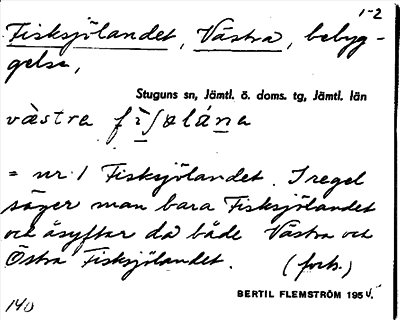 1-2
Fisksjölandet, Västra, bebyg-
gelse,
Stuguns sn, Jämtl. ö. doms. tg, Jämtl. län
västra
= nr 1 Fisksjölandet. I regel
säger man bara Fisksjölandet
och åsyftar då både Västra och
Östra Fisksjölandet. (forts.)
BERTIL FLEMSTRÖM 195
140